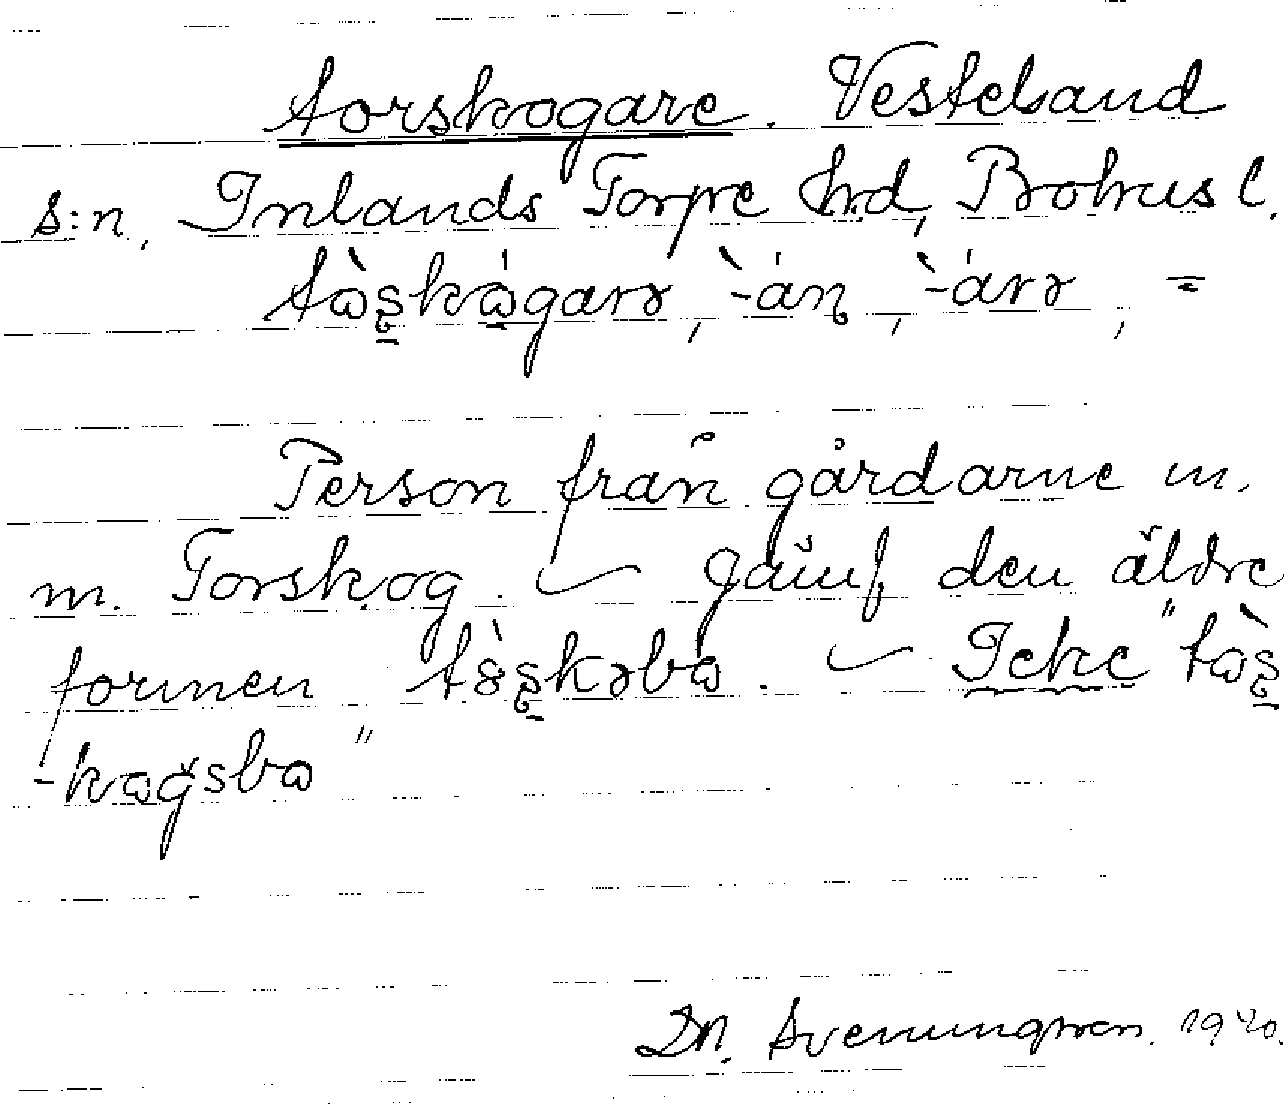 torskogare. Vesteland
s:n, Inlands Torpe hrd, Bohusl.
tɷ̀ʂkɷ́garə, -̀án, -̀árə, =
Person från gårdarne m.
m. Torskog. ~ Jämf den äldre
formen tȣ̀ʂkəbɷ. ~ Icke "tɷ̀ʂ
-kɷgsbɷ"
Dn. Svenningsson. 1920.